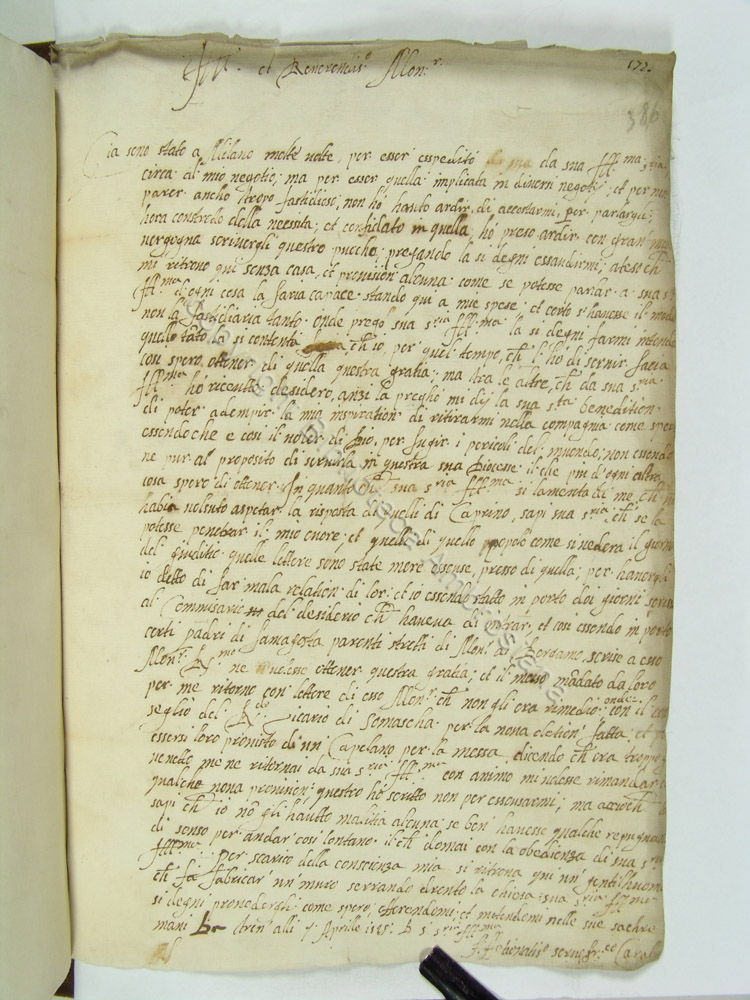 Ill.mo et Reverendiss.o Mon.r
172
386
Già sono stato a Milano molte volte, per esser espedito da sua Ill.ma s.ria
circa al mio negotio; ma per esser quella implicata in diversi negotij; et per non
parer ancho tropo fastidioso, non hò hauto ardir, di accostarmi, per parlargli;
hora constretto della necessita; et confidato in quella, hò preso ardir con gran
vergogna scrivergli questro pucho; pregando la si degni essaudirmi; atesi ch'
mi ritrovo qui senza casa, et provision alcuna come se potesse parlar a sua s.ria
Ill.ma d'ogni cosa la faria capace stando qui a mie spese et certo s'havesse il modo
non la fastidiaria tanto. Onde prego sua s.ria Ill.ma la si degni farmi intender
quello tato la si contenta ch'io, per quel tempo, ch' l'hò di servir facia
con spero ottener di quella questra gratia; ma tra le altre, ch' da sua s.ria
Ill.ma hò recevute desidero, anzi la preghò mi dij la sua s.ta benedition
di poter adempir la mia inspiration di ritirarmi nella compagnia come spero
essendo che e così il voler di Dio, per fugir i pericoli del muondo; non essendo
ne pur al proposito di servirla in questra sua Diocese il che più d'ogni altra
cosa spero di ottener. In quanto ch' sua s.ria Ill.ma si lamenta di me, ch'
habia volsuto aspetar la risposta di quelli di Caprino, sapi sua s.ria ch' se la
potesse penetrar il mio cuore; et quelli di quello popolo come si vederà il giorno
del giuditio quelle lettere sono state mere escuse, presso di quella; per havergli
io detto di far mala relation di lor: et io essendo stato in porto doi giorni scrissi
al Commisario del desiderio ch' haveva di intrar, et così essendo in porto
certi padri di famagosta parenti stretti di Mon.r di Bergamo, scrise a esso
Mon.r R.mo ne volesse ottener questra gratia; et il messo mandato da loro
per me ritornò con lettere di esso Mon.r ch' non gli era rimedio; onde con il
seglio del R.do Vicario di Somascha per la nova eletion fatta; et
essersi loro provisto di un Capelano per la messa, dicendo ch' era troppo
me ne ritornai da sua s.ria Ill.ma con animo mi volesse rimandar
qualche nova provision; questro hò scritto non per escusarmi; ma acciò ch'
sapi ch' io nò gli hautto malitia alcuna se ben' havesse qualche repugnanza
di senso per andar così lontano il ch' domai con la obedienza di sua s.ria
Ill.ma: per scarico della conscienza mia si ritrova qui un' gentilhuomo
ch' fa fabricar un' muro serrando drento la chiesa: sua s.ria Ill.ma
si degni provedergli come spero; offerendomi; et mettendomi nelle sue sachre
mani alli 7 Aprille D. S. s.ria Ill.ma